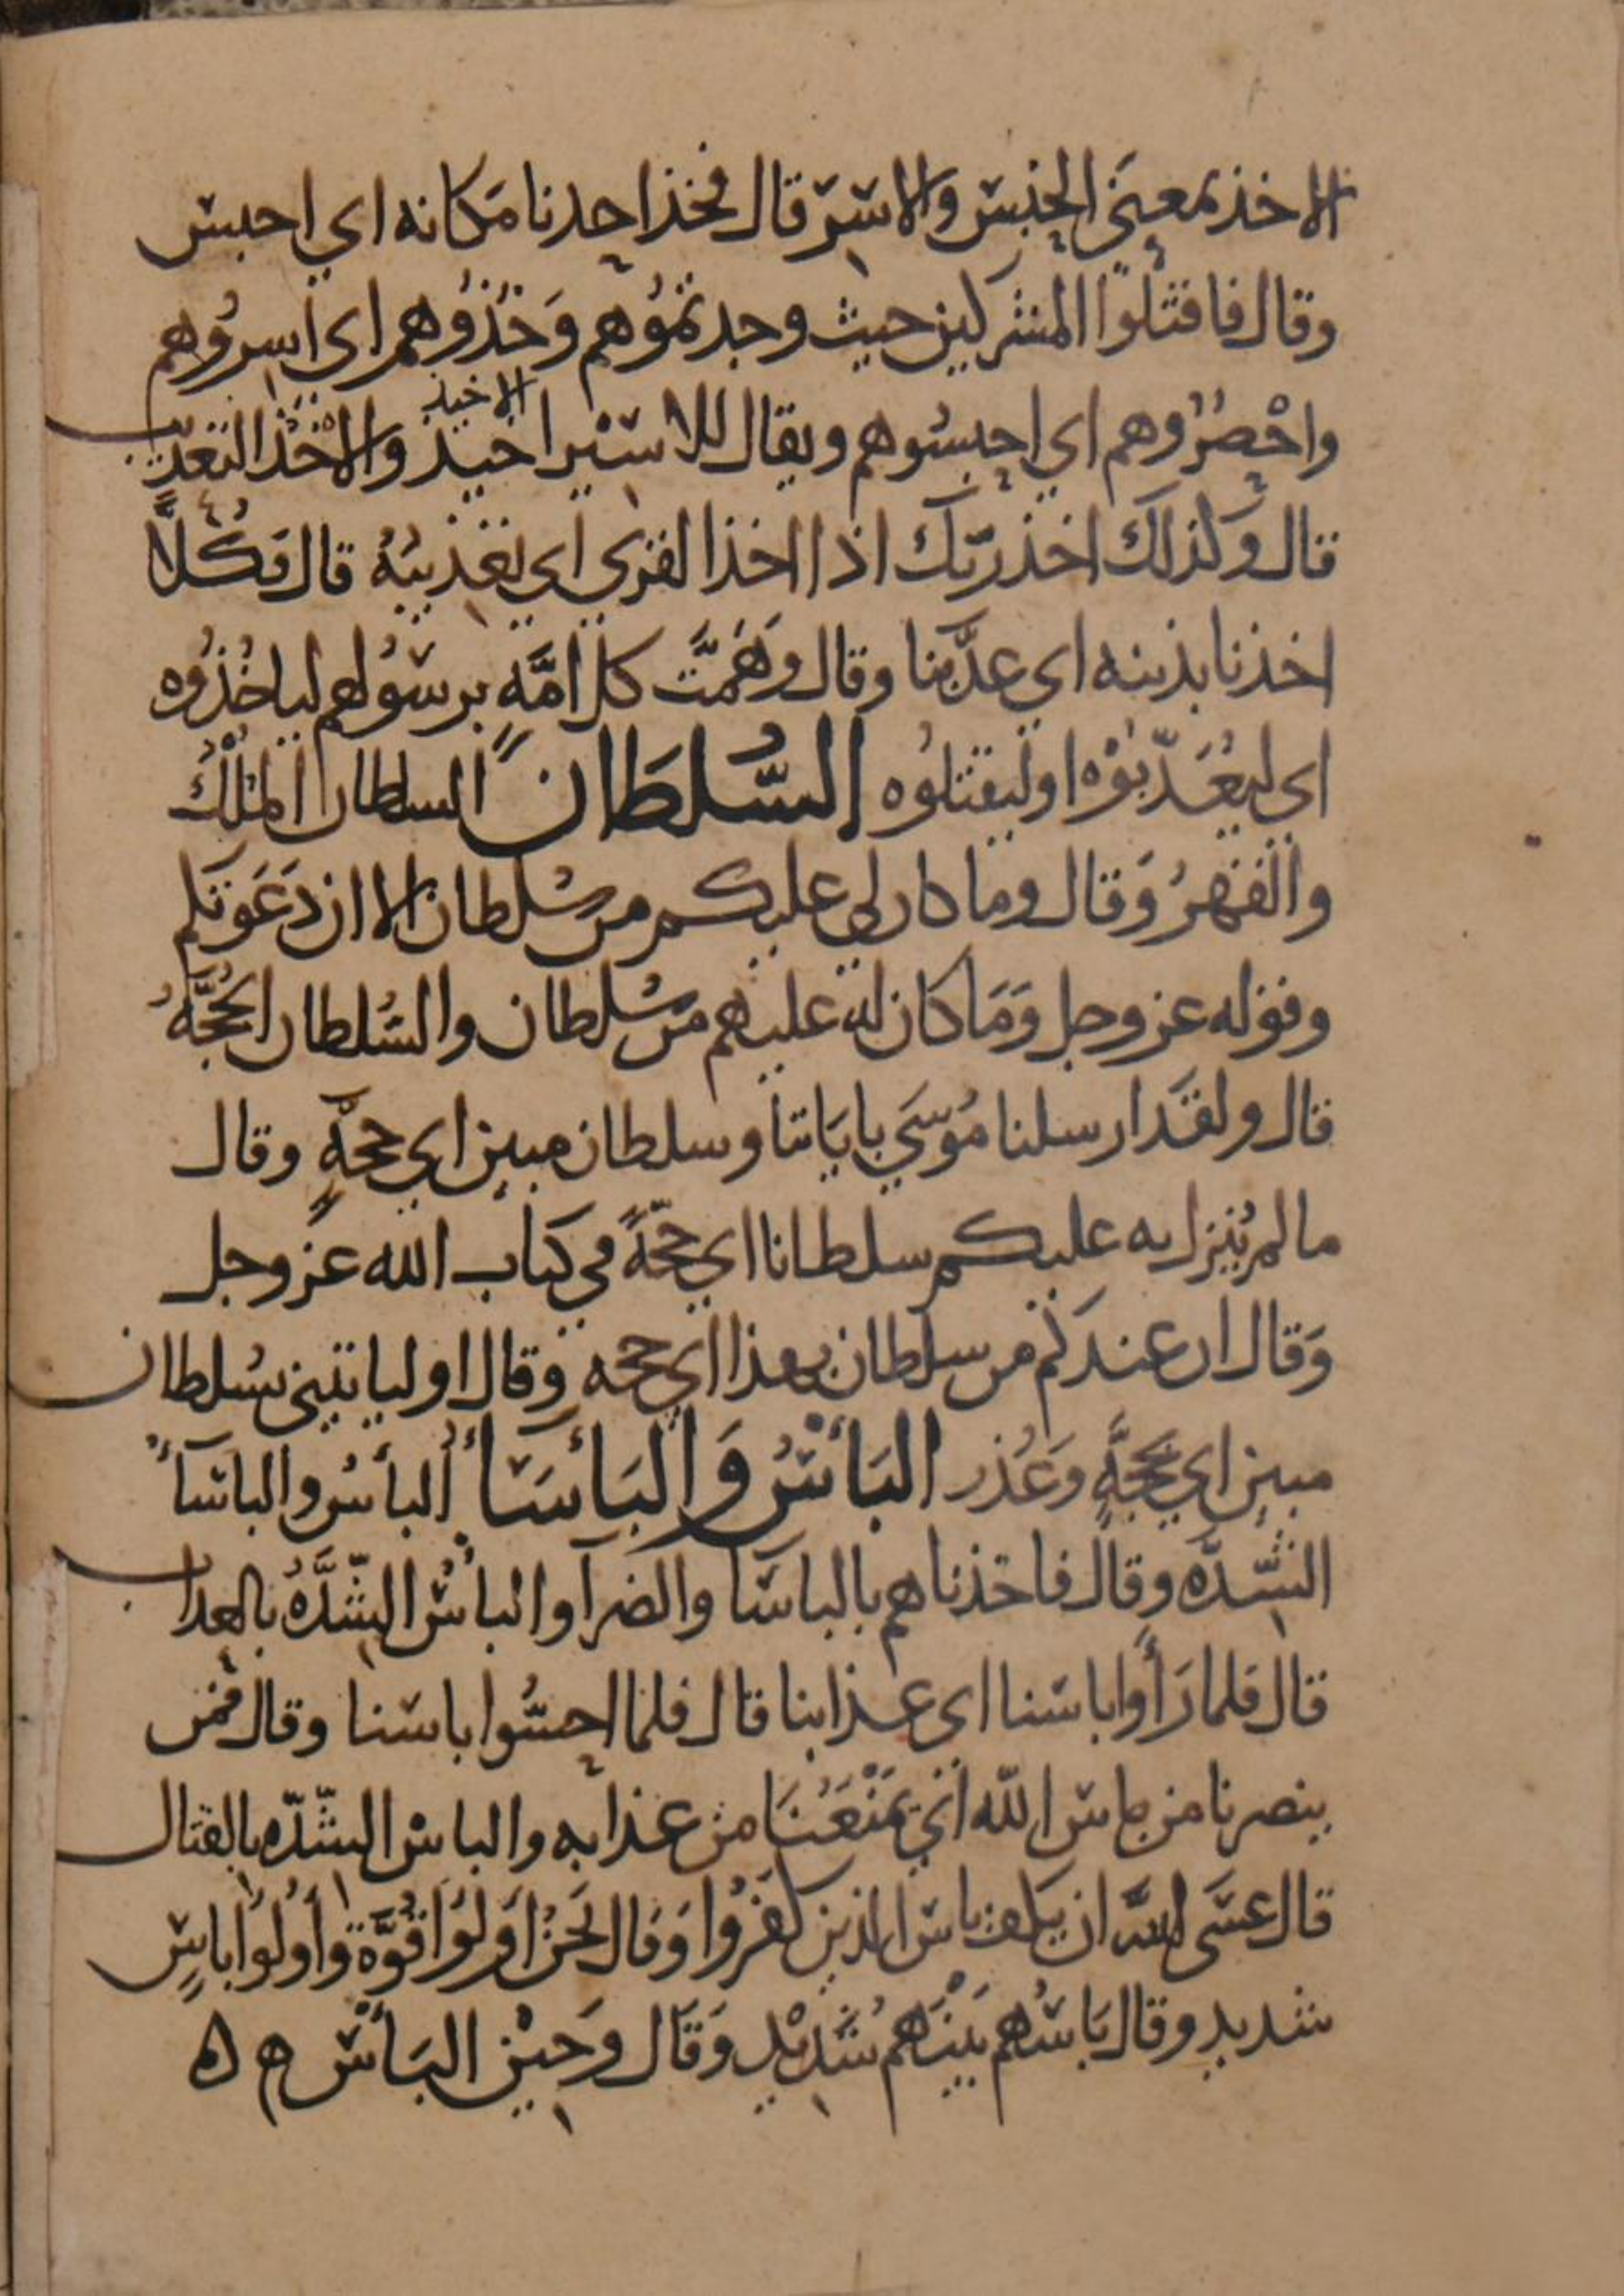 الاخذ بمعنى الحبس والاسر قال فخذ احدنا مكانه اي احبس
وقال فاقتلوا المشركين حيث وجدتموهم وَخُذُوهم اي اسِرُوهم
واحْصُرُوهم اي احبسُوهم ويقال للاسير اخيذ والاخْذ التعذيب
الاخيذ
قال وكذلك اخذ ربّك اذا اخذ القرى اي تعذيبُهُ قال فكُلًّا
اخذنا بذنبه اي عذّبنا وقال وَهَمَّت كل امَّةٍ برسُولهم لياخُذُوه
اي ليُعَذّبُوْه او ليقتلُوه السُّلطَان السلطان المُلْكُ
والقَهرُ وَقال وما كان لي عليكم من سُلطان الا ان دَعَوتكم
وقوله عز وجل وَمَا كان له عليهم من سُلطان والسُلطان الحُجَّهُ
قال ولقَد ارسلنا مُوسَي باياتنا وسلطان مبين اي حجّةٍ وقال
ما لم يُنزل به عليكم سلطانا اي حجّةً في كتاب الله عز وجل
وَقال ان عندكم من سلطان بهذا اي حجه وقال او لياتيني بسُلطان
مبين اي بحجَّةٍ وَعُذر البَأْسُ وَالبَأسَاءُ البأسُ والباسَآءُ
الشّدّه وقال فاخذناهم بالباسَا والضرآ والبأسُ الشّدَّهُ بالعذاب
قال فلما رَأَوا باسَنا اي عذابنا قال فلما احسُّوا باسَنا وقال فمن
ينصرنا من باس الله اي يَمْنَعُنَا من عذابه والباسُ الشّدّه بالقتال
قال عسَى الله ان يكف باس الذين كفَرُوا وَقال نَحنُ اُولُوا قُوَّة وأُولُوا باسٍ
شديد وقال بَاسُهم بَيْنَهم شَدِيْد وَقَال وَحيْن البَأسِ ه ه